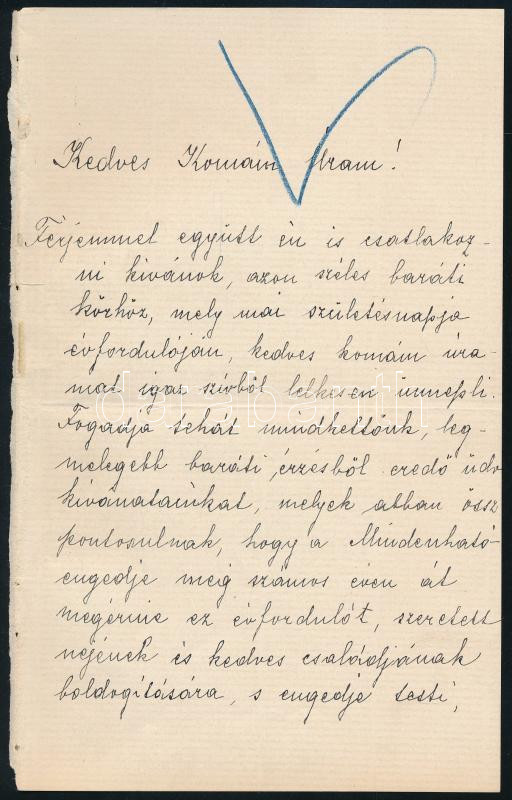 Kedves Komám Uram!
Férjemmel együtt én is csatlakoz-
ni kivánok, azon széles baráti
körhöz, mely mai születésnapja
évfordulóján, kedves komám ura-
mat igaz szívből lelkesen ünnepli.
Fogadja tehát mindkettőnk, leg-
melegebb baráti érzésből eredő üdv
kivánatainkat, melyek abban össz
pontosulnak, hogy a Mindenható
engedje meg számos éven át
megérnie ez évfordulót, szeretett
nejének és kedves családjának
boldogítására, s engedje testi,